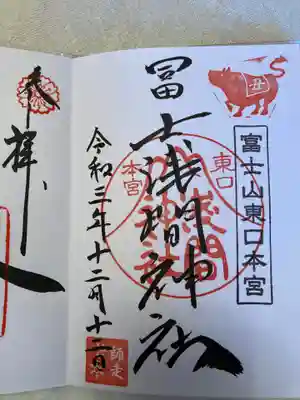 丑
富士山東口本宮
冨士浅間神社
東口
本宮
浅間
令和三年十二月十二日
師走
奉拝